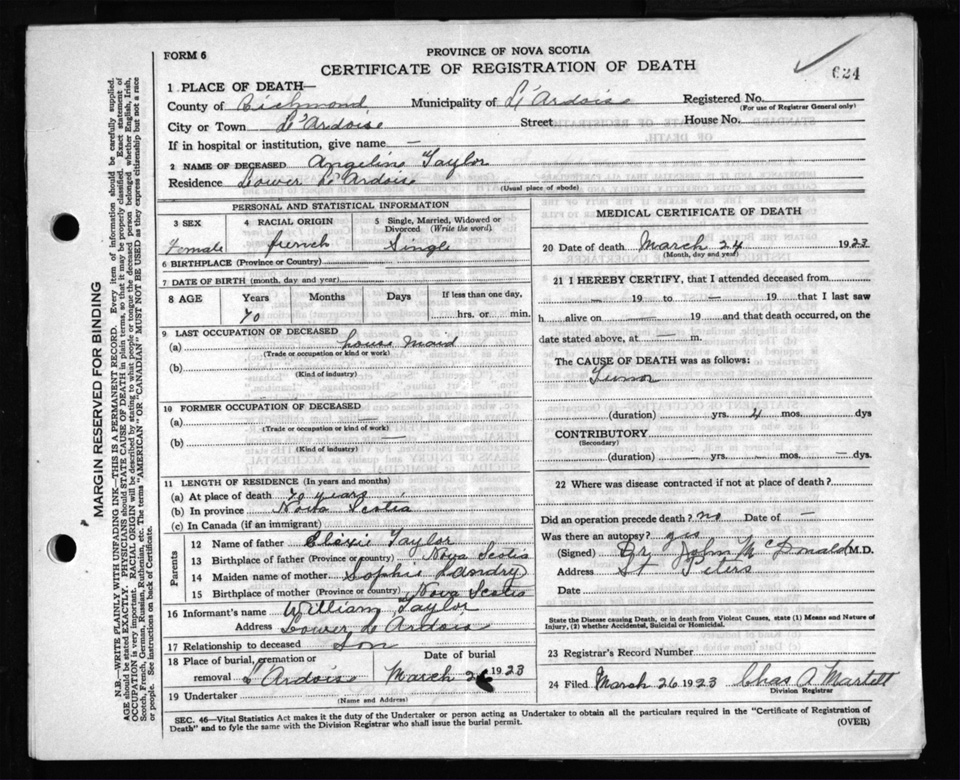 FORM 6
PROVINCE OF NOVA SCOTIA
CERTIFICATE OF REGISTRATION OF DEATH
624
1 PLACE OF DEATH—
County of Richmond Municipality of L'Ardoise Registered No.
(For use of Registrar General only)
City or Town L'Ardoise Street House No.
If in hospital or institution, give name —
2 NAME OF DECEASED Angeline Taylor
Residence Lower L'Ardoise
(Usual place of abode)
PERSONAL AND STATISTICAL INFORMATION
3 SEX
Female
4 RACIAL ORIGIN
french
5 Single, Married, Widowed or
Divorced (Write the word)
Single
6 BIRTHPLACE (Province or Country)
7 DATE OF BIRTH (month, day and year)
8 AGE Years Months Days If less than one day,
70 hrs. or min.
9 LAST OCCUPATION OF DECEASED
(a) house maid
(Trade or occupation or kind or work)
(b)
(Kind of industry)
10 FORMER OCCUPATION OF DECEASED
(a) —
(Trade or occupation or kind of work)
(b) —
(Kind of industry)
11 LENGTH OF RESIDENCE (In years and months)
(a) At place of death 70 years
(b) In province Nova Scotia
(c) In Canada (if an immigrant)
Parents
12 Name of father Elexis Taylor
13 Birthplace of father (Province or country) Nova Scotia
14 Maiden name of mother Sophie Landry
15 Birthplace of mother (Province or country) Nova Scotia
16 Informant's name William Taylor
Address Lower L'Ardoise
17 Relationship to deceased Son
18 Place of burial, cremation or
removal L'Ardoise
Date of burial
March 26 1923
19 Undertaker
(Name and Address)
MEDICAL CERTIFICATE OF DEATH
20 Date of death March 24 1923
(Month, day and year)
21 I HEREBY CERTIFY, that I attended deceased from
— 19 to — 19 that I last saw
h alive on — 19 and that death occurred, on the
date stated above, at — m.
The CAUSE OF DEATH was as follows:
Tumor
(duration) yrs. 4 mos. dys
CONTRIBUTORY
(Secondary)
(duration) — yrs. — mos. — dys.
22 Where was disease contracted if not at place of death?
Did an operation precede death? no Date of —
Was there an autopsy? yes
(Signed) Dr John McDonald M.D.
Address St Peters
Date
State the Disease causing Death, or in death from Violent Causes, state (1) Means and Nature of
Injury, (2) whether Accidental, Suicidal or Homicidal.
23 Registrar's Record Number
24 Filed March 26 1923 Chas A Martell
Division Registrar
SEC. 46—Vital Statistics Act makes it the duty of the Undertaker or person acting as Undertaker to obtain all the particulars required in the "Certificate of Registration of
Death" and to fyle the same with the Division Registrar who shall issue the burial permit.
(OVER)
MARGIN RESERVED FOR BINDING
N.B.—WRITE PLAINLY WITH UNFADING INK—THIS IS A PERMANENT RECORD. Every item of information should be carefully supplied.
AGE should be stated EXACTLY. PHYSICIANS should STATE CAUSE OF DEATH in plain terms, so that it may be properly classified. Exact statement of
OCCUPATION is very important. RACIAL ORIGIN will be described by stating to what people or tongue the deceased person belonged whether English, Irish,
Scotch, French, German, Russian, Ruthenian, etc. The terms "AMERICAN" OR "CANADIAN" MUST NOT BE USED as they express citizenship but not a race
or people. See instructions on back of Certificate.